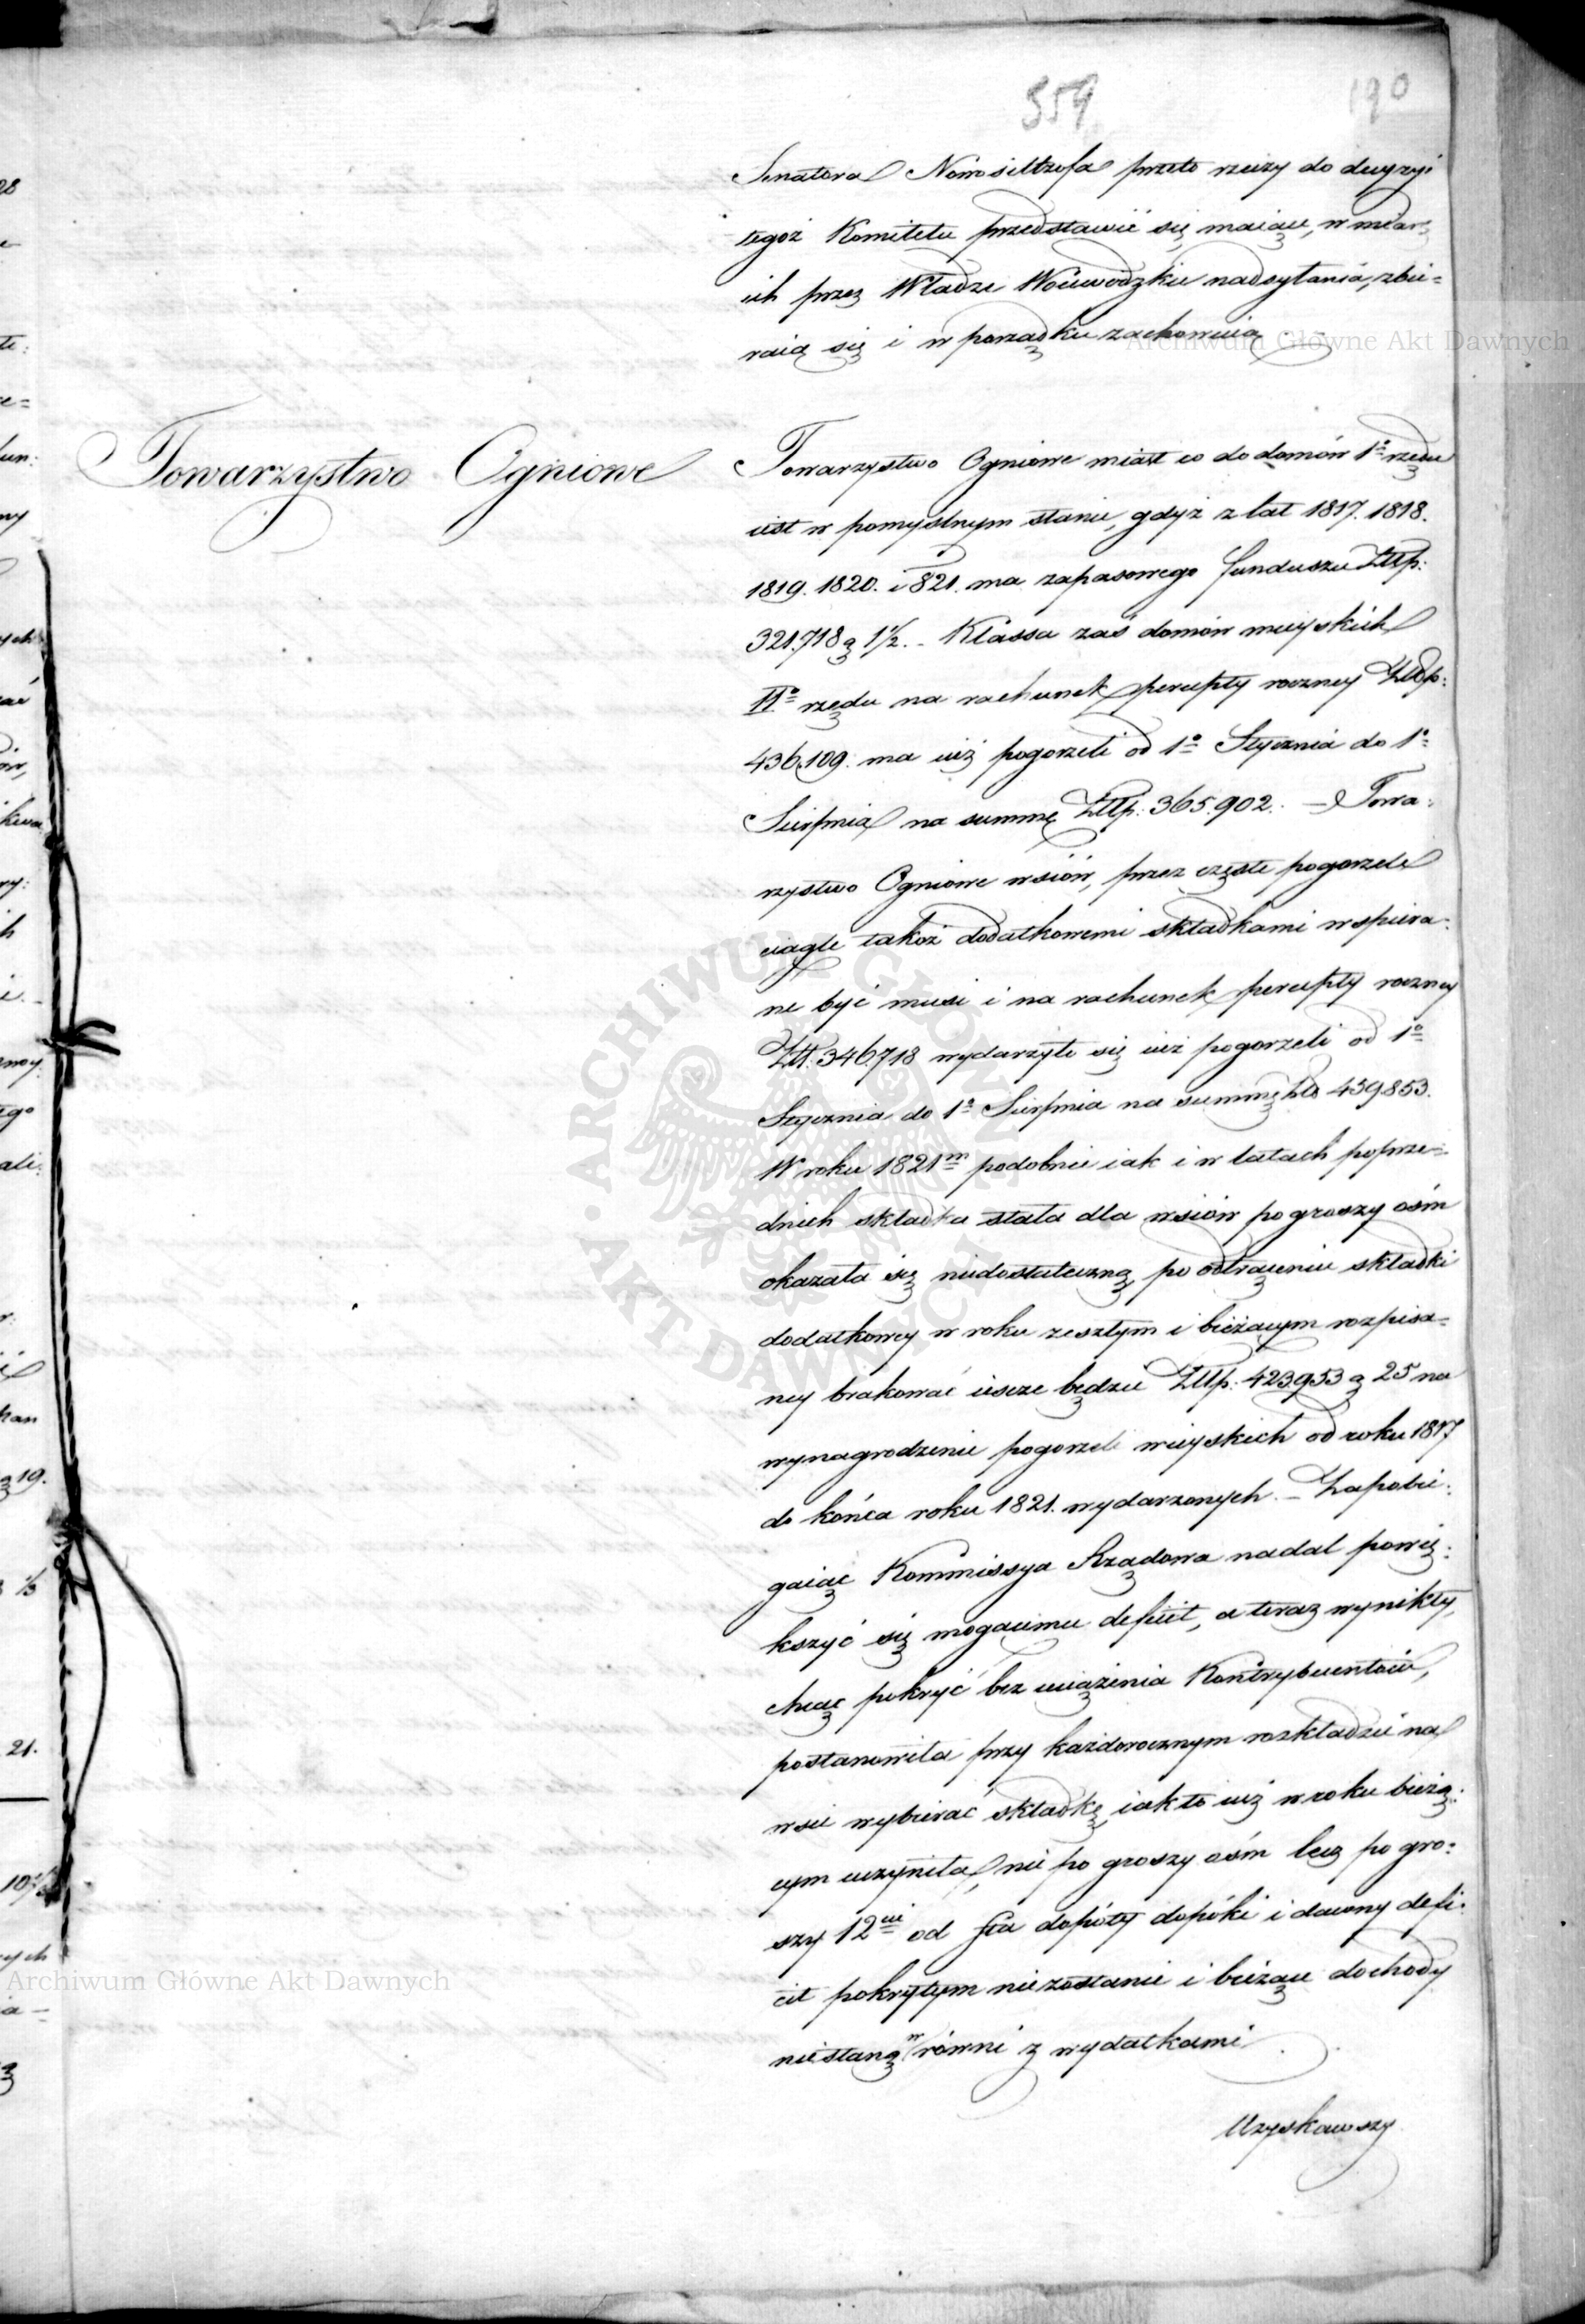 359
190
Senatora Nowosiltzofa przeto rzeczy do decyzyi
tegoż Komitetu przedstawić się maiące, w miarę
ich przez Władze Woiewodzkie nadsyłania, zbie=
raią się i w porządku zachowuią
Towarzystwo Ogniowe
Towarzystwo Ogniowe miast co do domów 1º rzędu
iest w pomyślnym stanie, gdyż z lat 1817. 1818.
1819. 1820. i 821. ma zapasowego funduszu Złłp:
321.718 g 1½. - Klassa zaś domów mieyskich
IIº rzędu na rachunek percepty roczney Złłp:
436,109. ma iuż pogorzeli od 1º Stycznia do 1º
Sierpnia na summę Złłp: 365.902. - Towa:
rzystwo Ogniowe wsiów, przez częste pogorzele
ciągle takoż dodatkowemi składkami wspiera:
ne być musi i na rachunek percepty roczney
Złł: 346.718 wydarzyło się iuż pogorzeli od 1º
Stycznia do 1º Sierpnia na summę Złł 459.853.
W roku 1821m podobnie iak i w latach poprze=
dnich składka stała dla wsiów po groszy ośm
okazała się niedostateczną, po odtrąceniu składki
dodatkowey w roku zeszłym i bieżącym rozpisa=
ney brakować ieszcze będzie Złłp: 423.953 g 25 na
wynagrodzenie pogorzeli wieyskich od roku 1817
do końca roku 1821. wydarzonych. - Zapobie:
gaiąc Kommissya Rządowa nadal powię:
kszyć się mogącemu deficit, a teraz wynikły,
chcąc pokryć bez uciążenia Kontrybuentów,
postanowiła przy każdorocznym rozkładzie na
wsie wybierać składkę, iak to iuż w roku bieżą:
cym uczyniła, nie po groszy ośm lecz po gro:
szy 12cie od sta dopóty dopóki i dawny defi:
cit pokrytym nie zostanie i bieżące dochody
nie staną w równi z wydatkami
Uzyskawszy